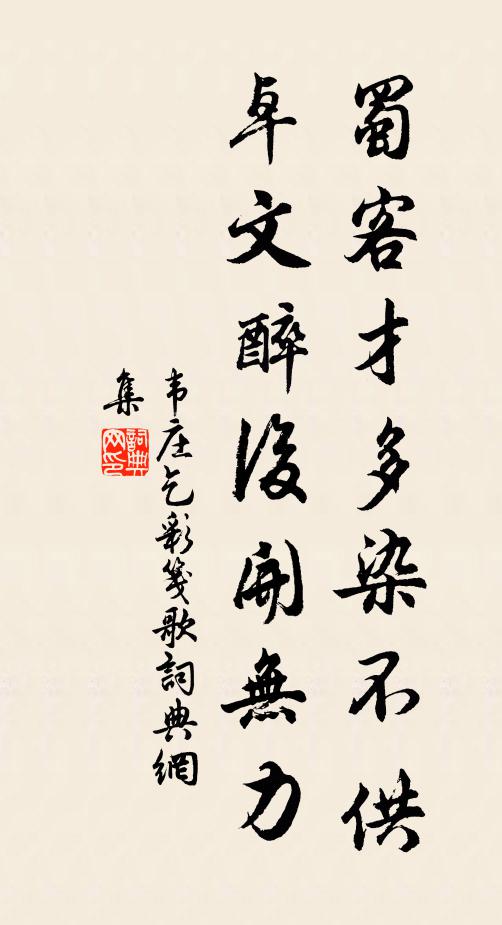 蜀客才多染不供
卓文醉後開無力
韦庄乞彩箋歌詞典網
集
詞典
网印